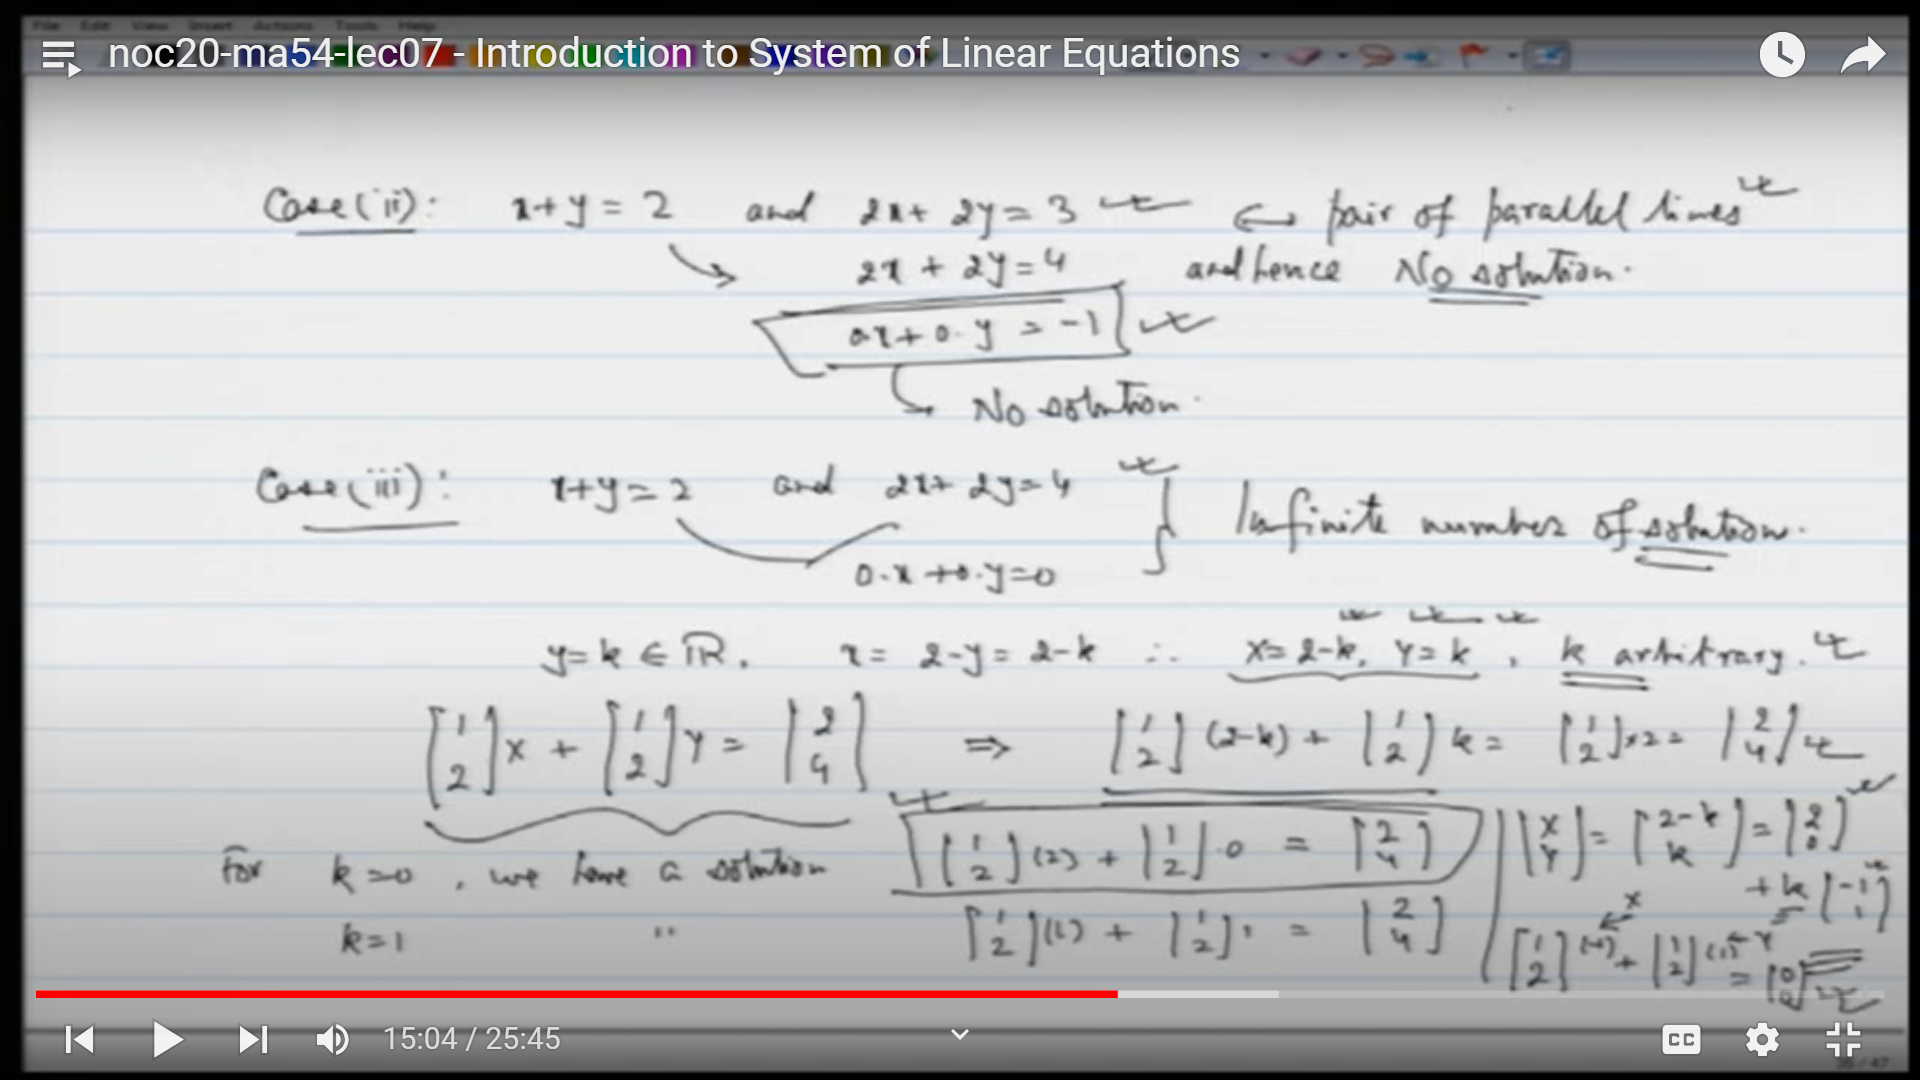 File Edit View Insert Actions Tools Help
noc20-ma54-lec07 - Introduction to System of Linear Equations
Case(ii): x+y=2 and 2x+2y=3 ↩ pair of parallel lines
2x+2y=4 and hence No solution.
0x+0.y=-1
↳ No solution.
Case(iii): x+y=2 and 2x+2y=4 } Infinite number of solution.
0.x+0.y=0
y=k∈ℝ, x=2-y=2-k ∴ x=2-k, y=k, k arbitrary.
[1 2]x + [1 2]y = [2 4] ⇒ [1 2](2-k) + [1 2]k = [1 2]x2 = [2 4]
For k=0, we have a solution [1 2](2) + [1 2].0 = [2 4] [x y] = [2-k k] = [2 0] + k[-1 1]
k=1 " [1 2](1) + [1 2]1 = [2 4] [1 2](-1) + [1 2](1) = [0 0]
x y
15:04 / 25:45
CC